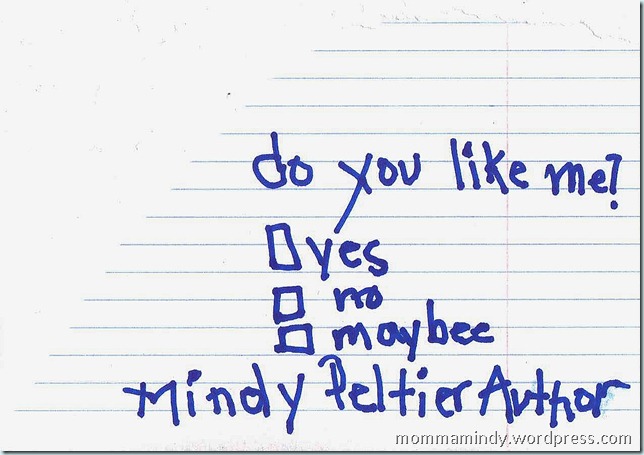 do you like me?
yes
no
maybee
Mindy Peltier Author
mommamindy.wordpress.com